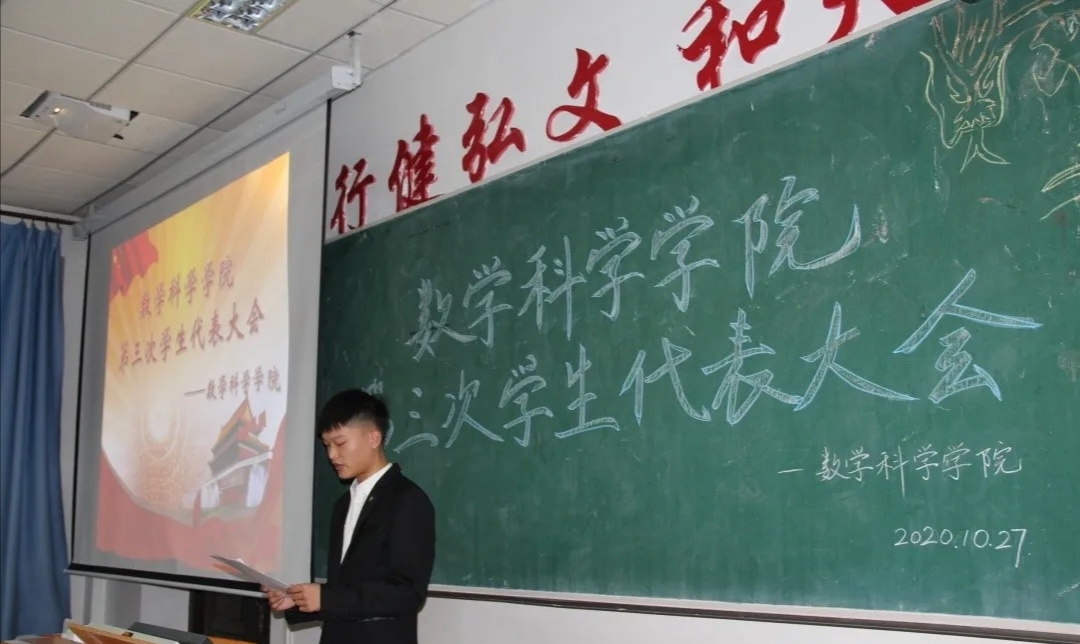 行健弘文 和
数学科学学院
第三次学生代表大会
——数学科学学院
数学科学学院
三次学生代表大会
—数学科学学院
2020.10.27